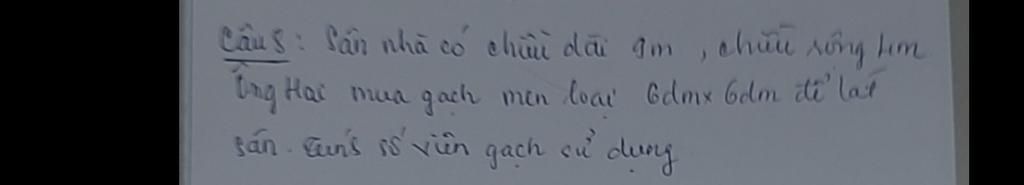 Câu 5: Sân nhà có chiều dài 9m, chiều rộng 4m
Ông Hai mua gạch men loại 6dm x 6dm để lát
sân. Tính số viên gạch sử dụng